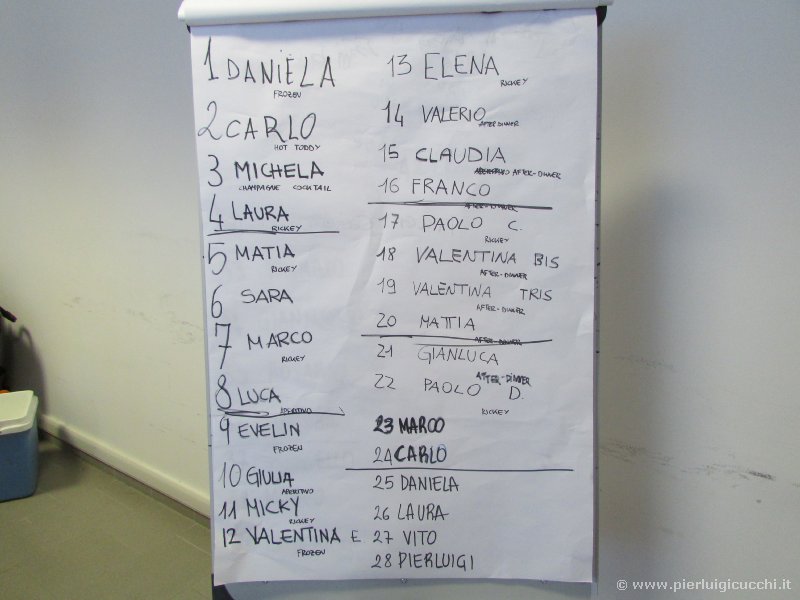 1 DANIELA
FROZEN
2 CARLO
HOT TODDY
3 MICHELA
CHAMPAGNE COCKTAIL
4 LAURA
RICKEY
5 MATIA
RICKEY
6 SARA
7 MARCO
RICKEY
8 LUCA
APERITIVO
9 EVELIN
FROZEN
10 GIULIA
APERITIVO
11 MICKY
RICKEY
12 VALENTINA E
FROZEN
13 ELENA
RICKEY
14 VALERIO
AFTER DINNER
15 CLAUDIA
AFTER-DINNER
16 FRANCO
AFTER-DINNER
17 PAOLO C.
RICKEY
18 VALENTINA BIS
AFTER-DINNER
19 VALENTINA TRIS
AFTER-DINNER
20 MATTIA
AFTER-DINNER
21 GIANLUCA
AFTER-DINNER
22 PAOLO D.
RICKEY
23 MARCO
24 CARLO
25 DANIELA
26 LAURA
27 VITO
28 PIERLUIGI
© www.pierluigicucchi.it